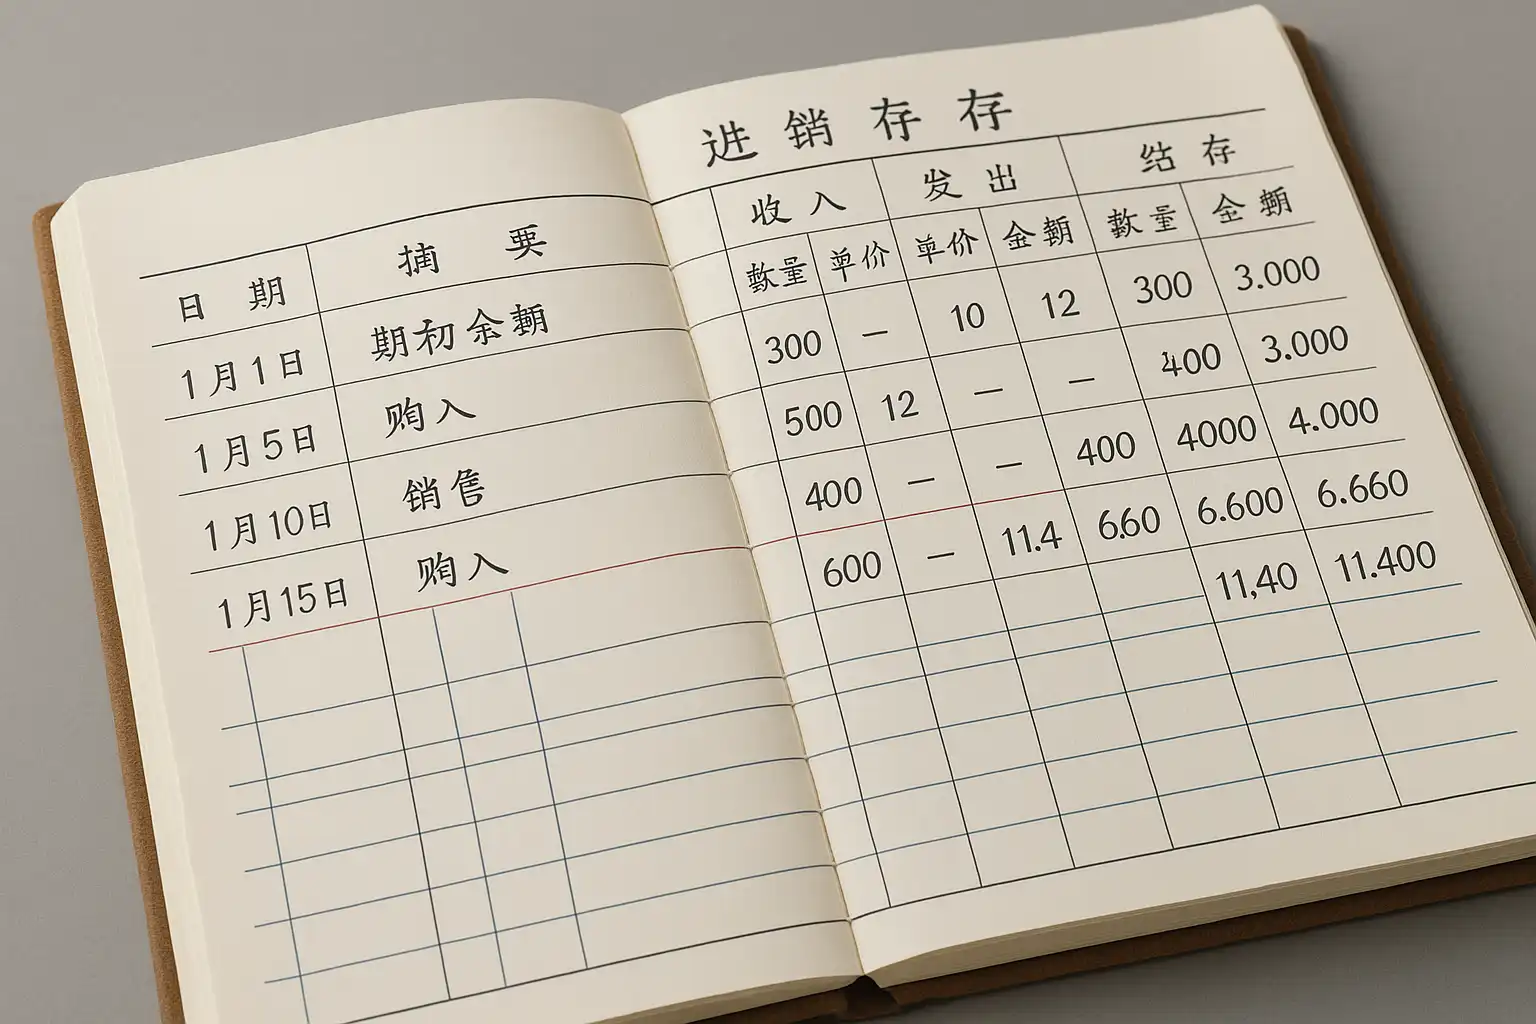 进销存存
收入 发出 结存
日期 摘要 数量 单价 单价 金额 数量 金额
1月1日 期初余额 300 — 10 12 300 3.000
1月5日 购入 500 12 — — 400 3.000
1月10日 销售 400 — — 400 4000 4.000
1月15日 购入 600 — 11.4 660 6.600 6.660
11,40 11.400